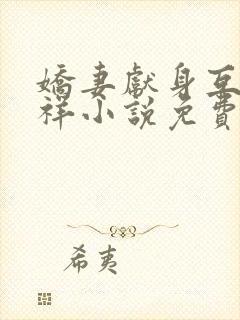 嬌妻獻身互
祥小說免費
希夷